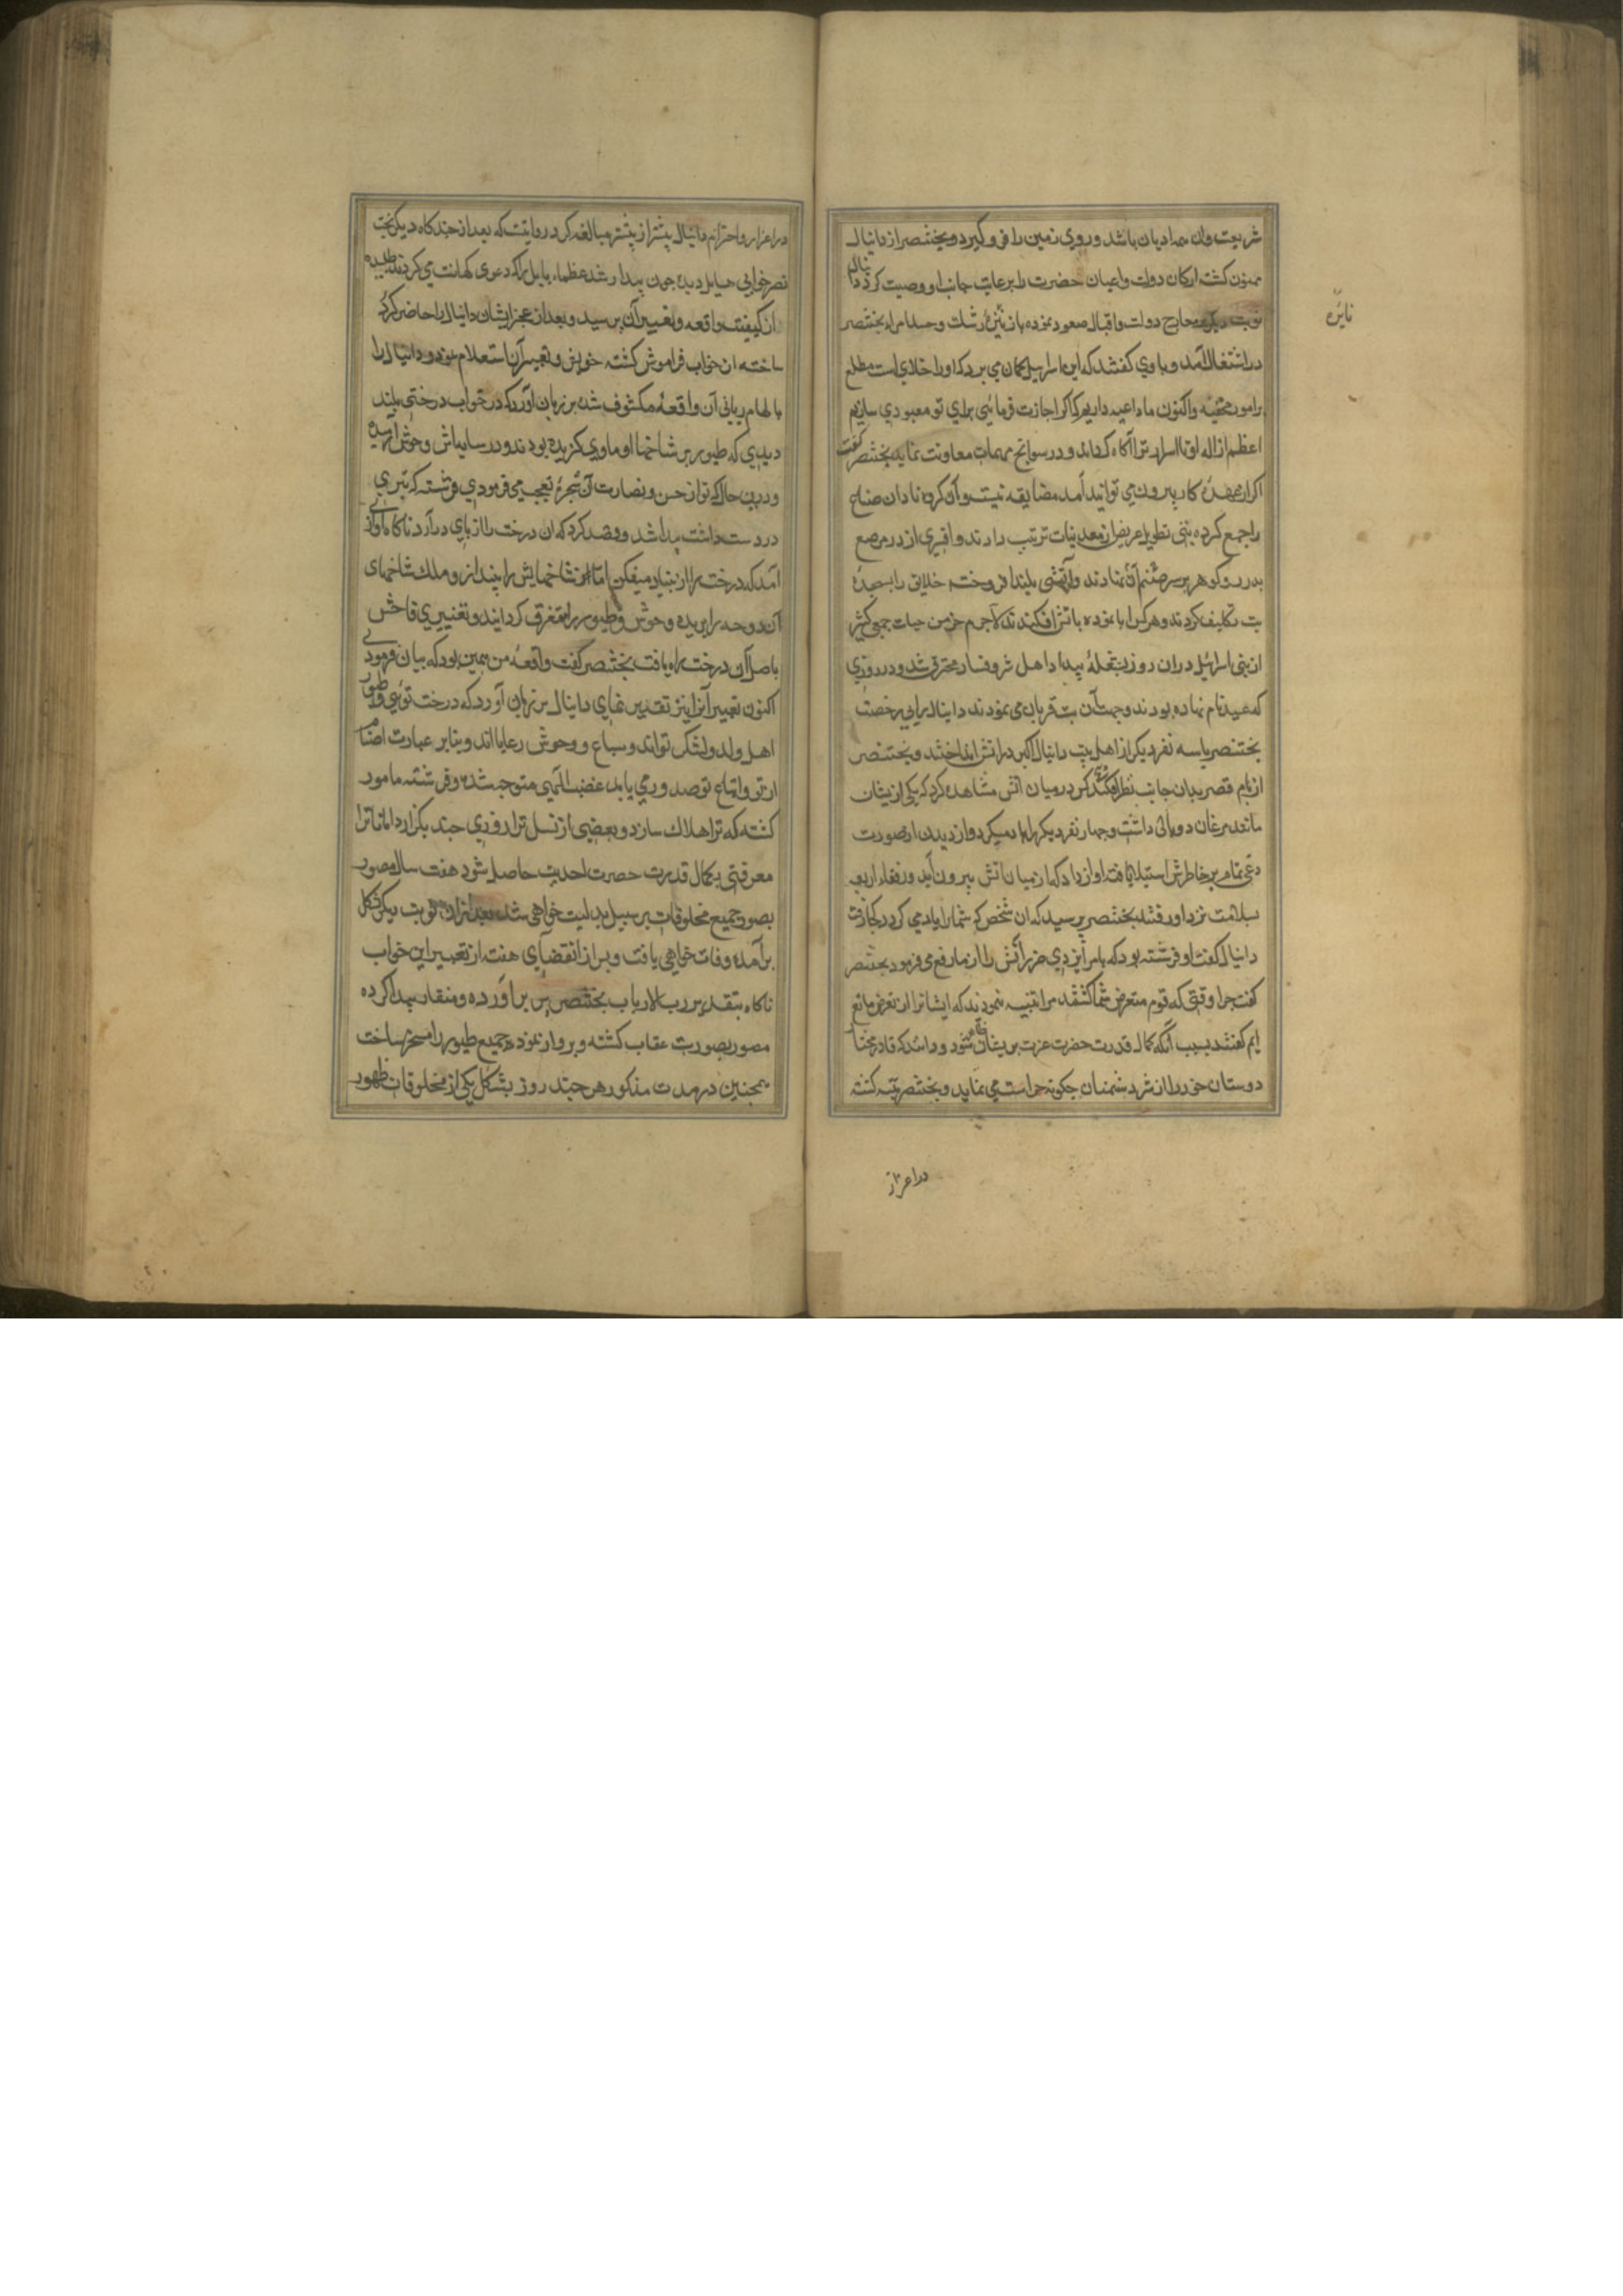 شریعت وان همه ادیان باشد و روی زمین را فرو گیرد و بختنصر از دانیال
ممنون گشته ارکان دولت و اعیان حضرت را برعایت جانب او وصیت کرد دانیال
نوبت دیگر بمعارج دولت و اقبال صعود نموده باز نایرهٔ رشک و حسد امراء بختنصر
نایره
در اشتعال آمد و با وی گفتند که این اسرائیلی گمان می برد که او را خدای است مطلع
بر امور مخفیه و اکنون ما داعیه داریم که اگر اجازت فرمائی برای تو معبودی سازیم
اعظم از اله او تا اسرار ترا آگاه گرداند و در سوانح مهمات معاونت نماید بختنصر گفت
اگر از عهدهٔ کار بیرون می توانید آمد مضایقه نیست و آن گروه نادان صناع
را جمع کرده بتی طویل عریض از معدنیات ترتیب دادند و افسری از در مرصع
بدر و گوهر بر سر صنم آن نهادند و آتشی بلند افروخته خلایق را بسجدهٔ
بت تکلیف کردند و هر کس ابا نموده باتش افکندند لاجرم خرمن حیات جمعی کثیر
از بنی اسرائیل در آن روز بشعلهٔ بیداد اهل شر و فساد محترق شد و در روزی
که عید نام نهاده بودند و جهت آن بت قربان می نمودند دانیال را بی رخصت
بختنصر با سه نفر دیگر از اهل بیت دانیال اکبر در اتش انداختند و بختنصر
از بام قصر بدان جانب نظر افکند کس در میان اتش مشاهده کرد که یکی ازیشان
مانند مرغان دو بال داشت و چهار نفر دیگر را باد میکرد و از دیدن ان صورت
رعبی تمام بر خاطرش استیلا یافته اواز داد که از میان اتش بیرون آیید و رفقاء اربعه
بسلامت نزد او رفتند بختنصر پرسید که ان شخص که شما را باد می کرد کجا رفت
دانیال گفت او فرشته بود که بامر ایزدی حر آتش را از ما رفع می فرمود بختنصر
گفت چرا وقتی که قوم متعرض شما گشتند مرا تنبیه ننمودند که ایشانرا از تعرض مانع
ایم گفتند بسبب آنکه کمال قدرت حضرت عزت بریشان ظاهر شود و دانند که قادر مختار
دوستان خود را از شر دشمنان چگونه حراست می نماید و بختنصر متنبه گشته
در اعزاز
در اعزاز و احترام دانیال بیشتر از پیشتر مبالغه کرد روایتست که بعد از چندگاه دیگر بخت
نصر خوابی هایل دیده چون بیدار شد عظماء بابل را که دعوی کهانت می کردند طلبیده
از کیفیت واقعه و تعبیر آن پرسید و بعد از عجز ایشان دانیال را حاضر کرد
ساخته ان خواب فراموش گشته خویش و تعبیر آن استعلام نمود و دانیال را
بالهام ربانی آن واقعه مکشوف شده بر زبان آورد که در خواب درختی بلند
دیدی که طیور بر شاخها او ماوی گزیده بودند و در سایه اش وحوش ارمیده
و درین حال که تو از حسن و نضارت آن شجره تعجب می فرمودی فرشته که تبری
در دست داشت پیدا شد و قصد کرد که ان درخت را از پای درآرد ناگاه آوازی
آمد که درخت را از بنیاد میفکن اما از شاخهایش را بینداز و ملک شاخهای
آن دوحه را بریده وحوش و طیور را متفرق گردانید و تغییری فاحش
باصل آن درخت راه یافت بختنصر گفت واقعهٔ من همین بود که بیان فرمودی
اکنون تعبیر آنرا نیز تقریر نمای دانیال بر زبان آورد که درخت توئی و طیور
اهل و ولد و لشکر تو اند و سباع و وحوش رعایا اند و بنابر عبادت اصنام
از تو و اتباع تو صدور می یابد غضب الهی متوجه شده و فرشته مامور
گشته که ترا هلاک سازد و بعضی از نسل ترا روزی چند بگذارد اما تا ترا
معرفتی بکمال قدرت حضرت احدیت حاصل شود هفت سال مصور
بصور جمیع مخلوقات بر سبیل بدلیت خواهی شد بعد ازان نوبت دیگر بشکل
برآمده وفات خواهی یافت و پس از انقضای هفته از تعبیر این خواب
ناگاه بتقدیر رب الارباب بختنصر پر برآورده و منقار پیدا کرده
مصور بصورت عقاب گشته و پرواز نموده جمیع طیور را مسخر ساخت
همچنین در مدت مذکور هر چند روز بشکل یکی از مخلوقات ظهور